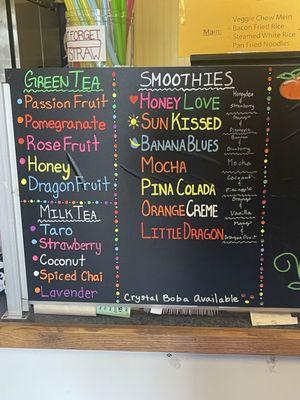 FORGET
STRAW
Veggie Chow Mein
Bacon Fried Rice
Main:
Steamed White Rice
Pan Fried Noodles
GREEN TEA
Passion Fruit
Pomegranate
Rose Fruit
Honey
Dragon Fruit
MILK TEA
Taro
Strawberry
Coconut
Spiced Chai
Lavender
SMOOTHIES
HONEY LOVE
Honeydew
&
Strawberry
SUN KISSED
Pineapple
BANANA BLUES
Banana
&
Blueberry
MOCHA
Mocha
PINA COLADA
Coconut
&
Pineapple
ORANGE CREME
Orange
&
Vanilla
LITTLE DRAGON
Mango
&
Dragon Fruit
Crystal Boba Available